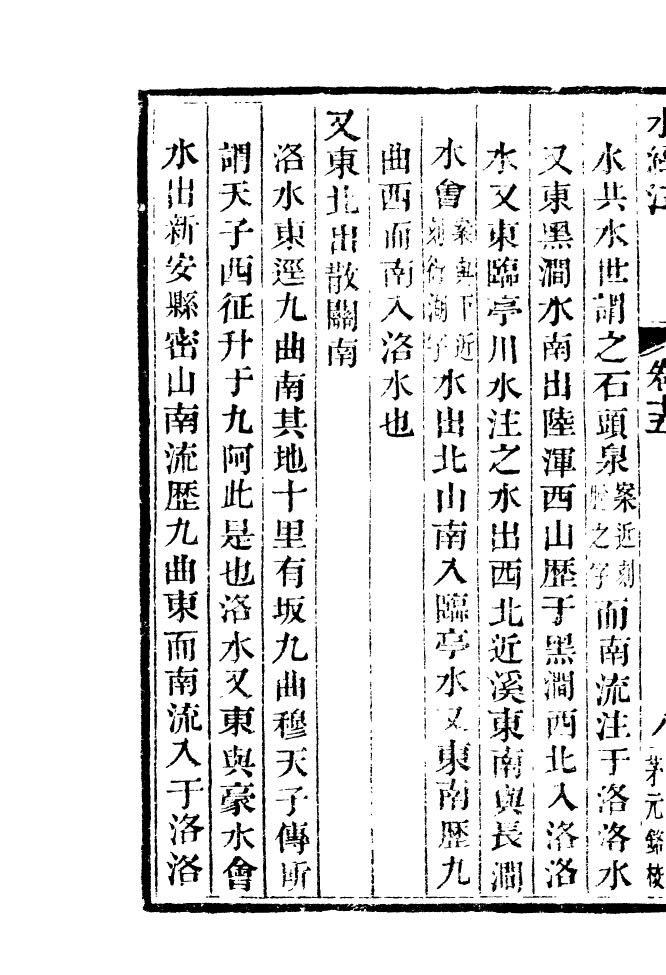 水經注 卷十五 八 茅元銘校
水共水世謂之石頭泉案近刻脫之字而南流注于洛洛水
又東黑澗水南出陸渾西山歷于黑澗西北入洛洛
水又東臨亭川水注之水出西北近溪東南與長澗
水會案與下近刻衍湖字水出北山南入臨亭水又東南歷九
曲西而南入洛水也
又東北出散關南
洛水東逕九曲南其地十里有坂九曲穆天子傳所
謂天子西征升于九阿此是也洛水又東與豪水會
水出新安縣密山南流歷九曲東而南流入于洛洛